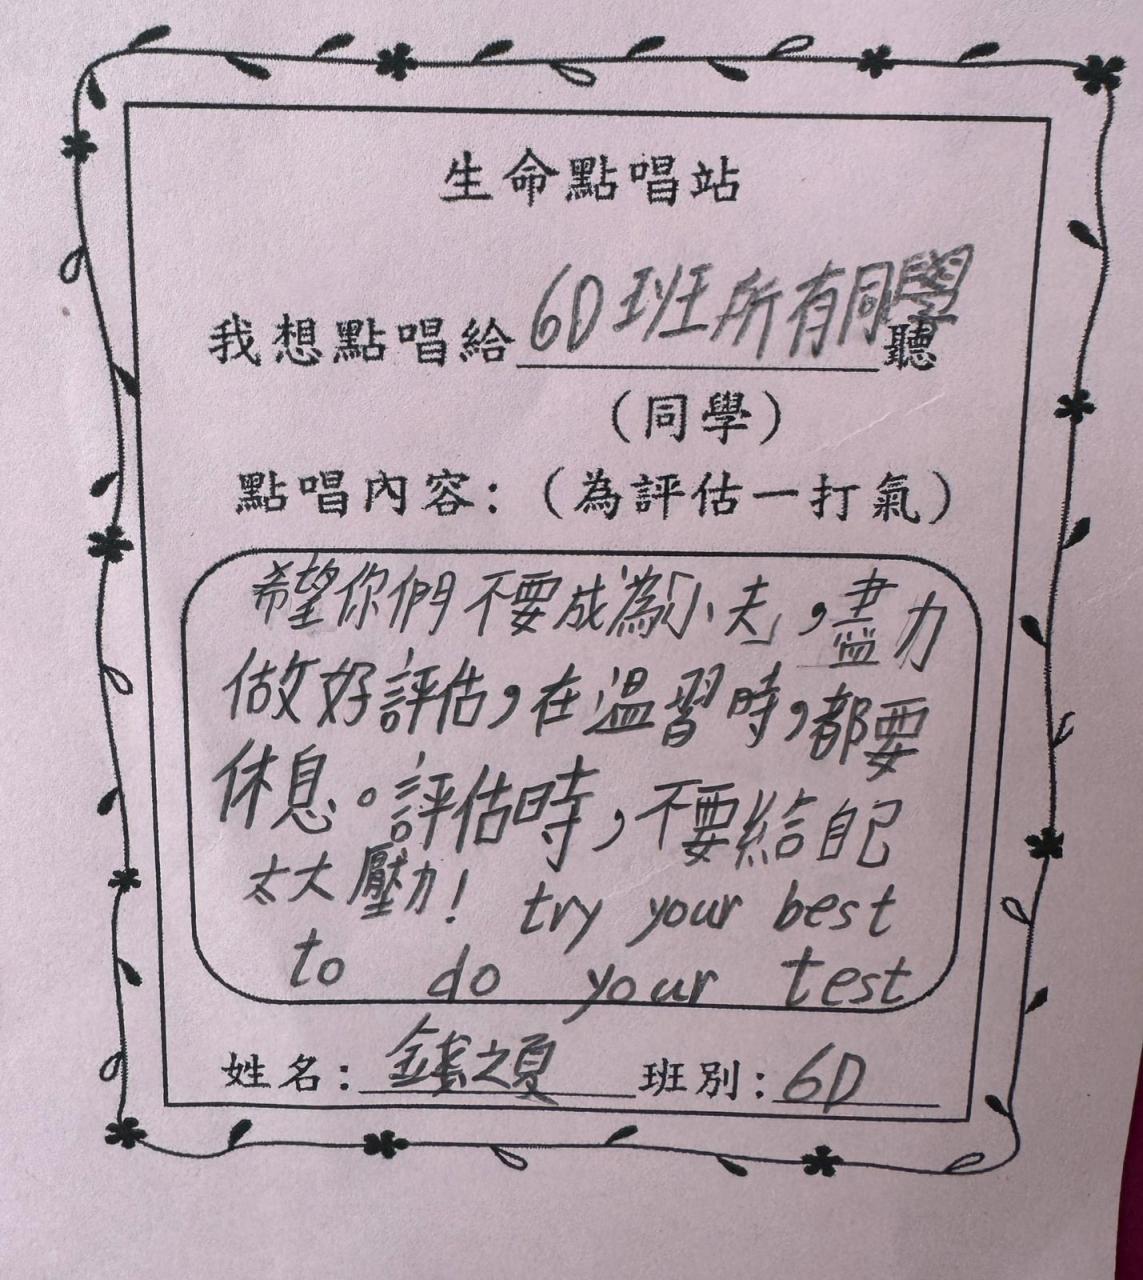 生命點唱站
我想點唱給6D班所有同學聽
(同學)
點唱內容:(為評估一打氣)
希望你們不要成為「小夫」,盡力
做好評估,在温習時,都要
休息。評估時,不要給自己
太大壓力!try your best
to do your test
姓名:之夏 班別:6D